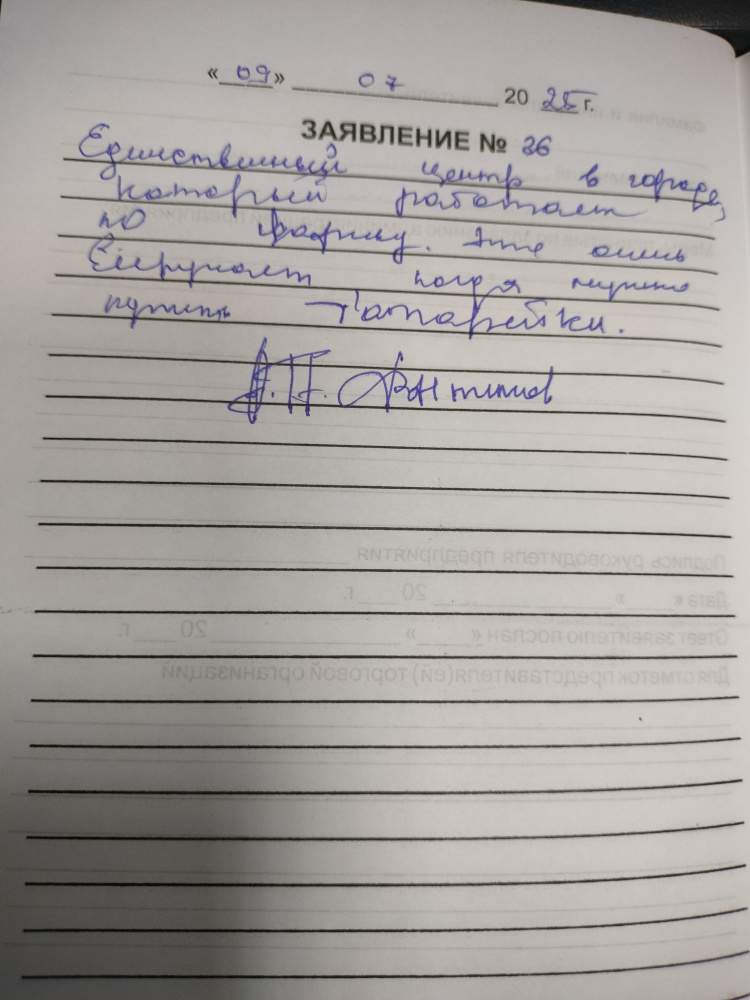 «09» 07 2025 г.
ЗАЯВЛЕНИЕ № 36
Единственный центр в городе,
который работает
по факту. Это очень
выручает когда нужно
купить батарейки.
А.П.
Подпись руководителя предприятия
Дата « » 20 г.
Ответ заявителю послан « » 20 г.
Для отметок представителя(ей) торговой организации